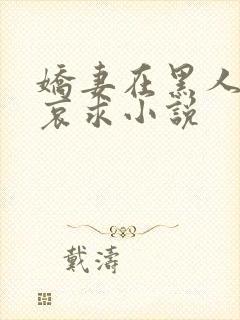 嬌妻在黑人
哀求小說
戴濤